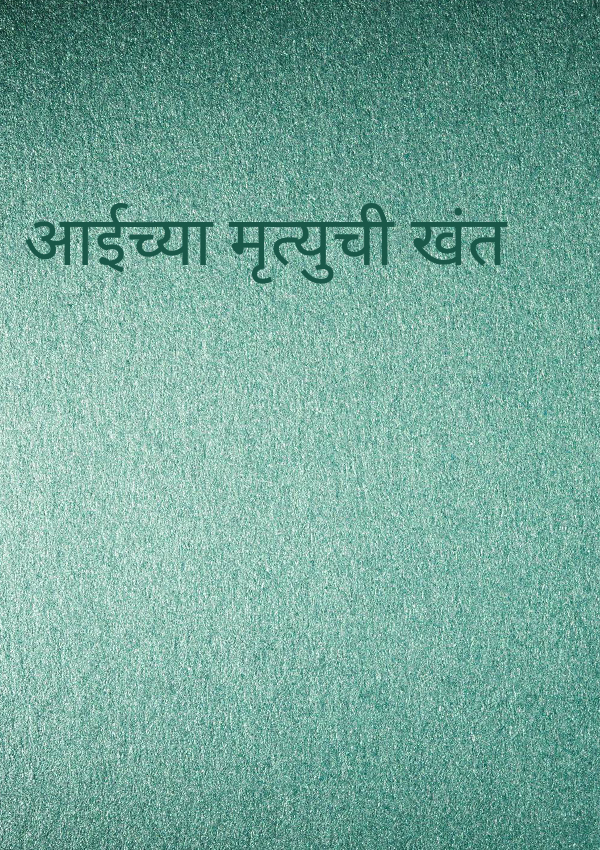 आईच्या मृत्युची खंत